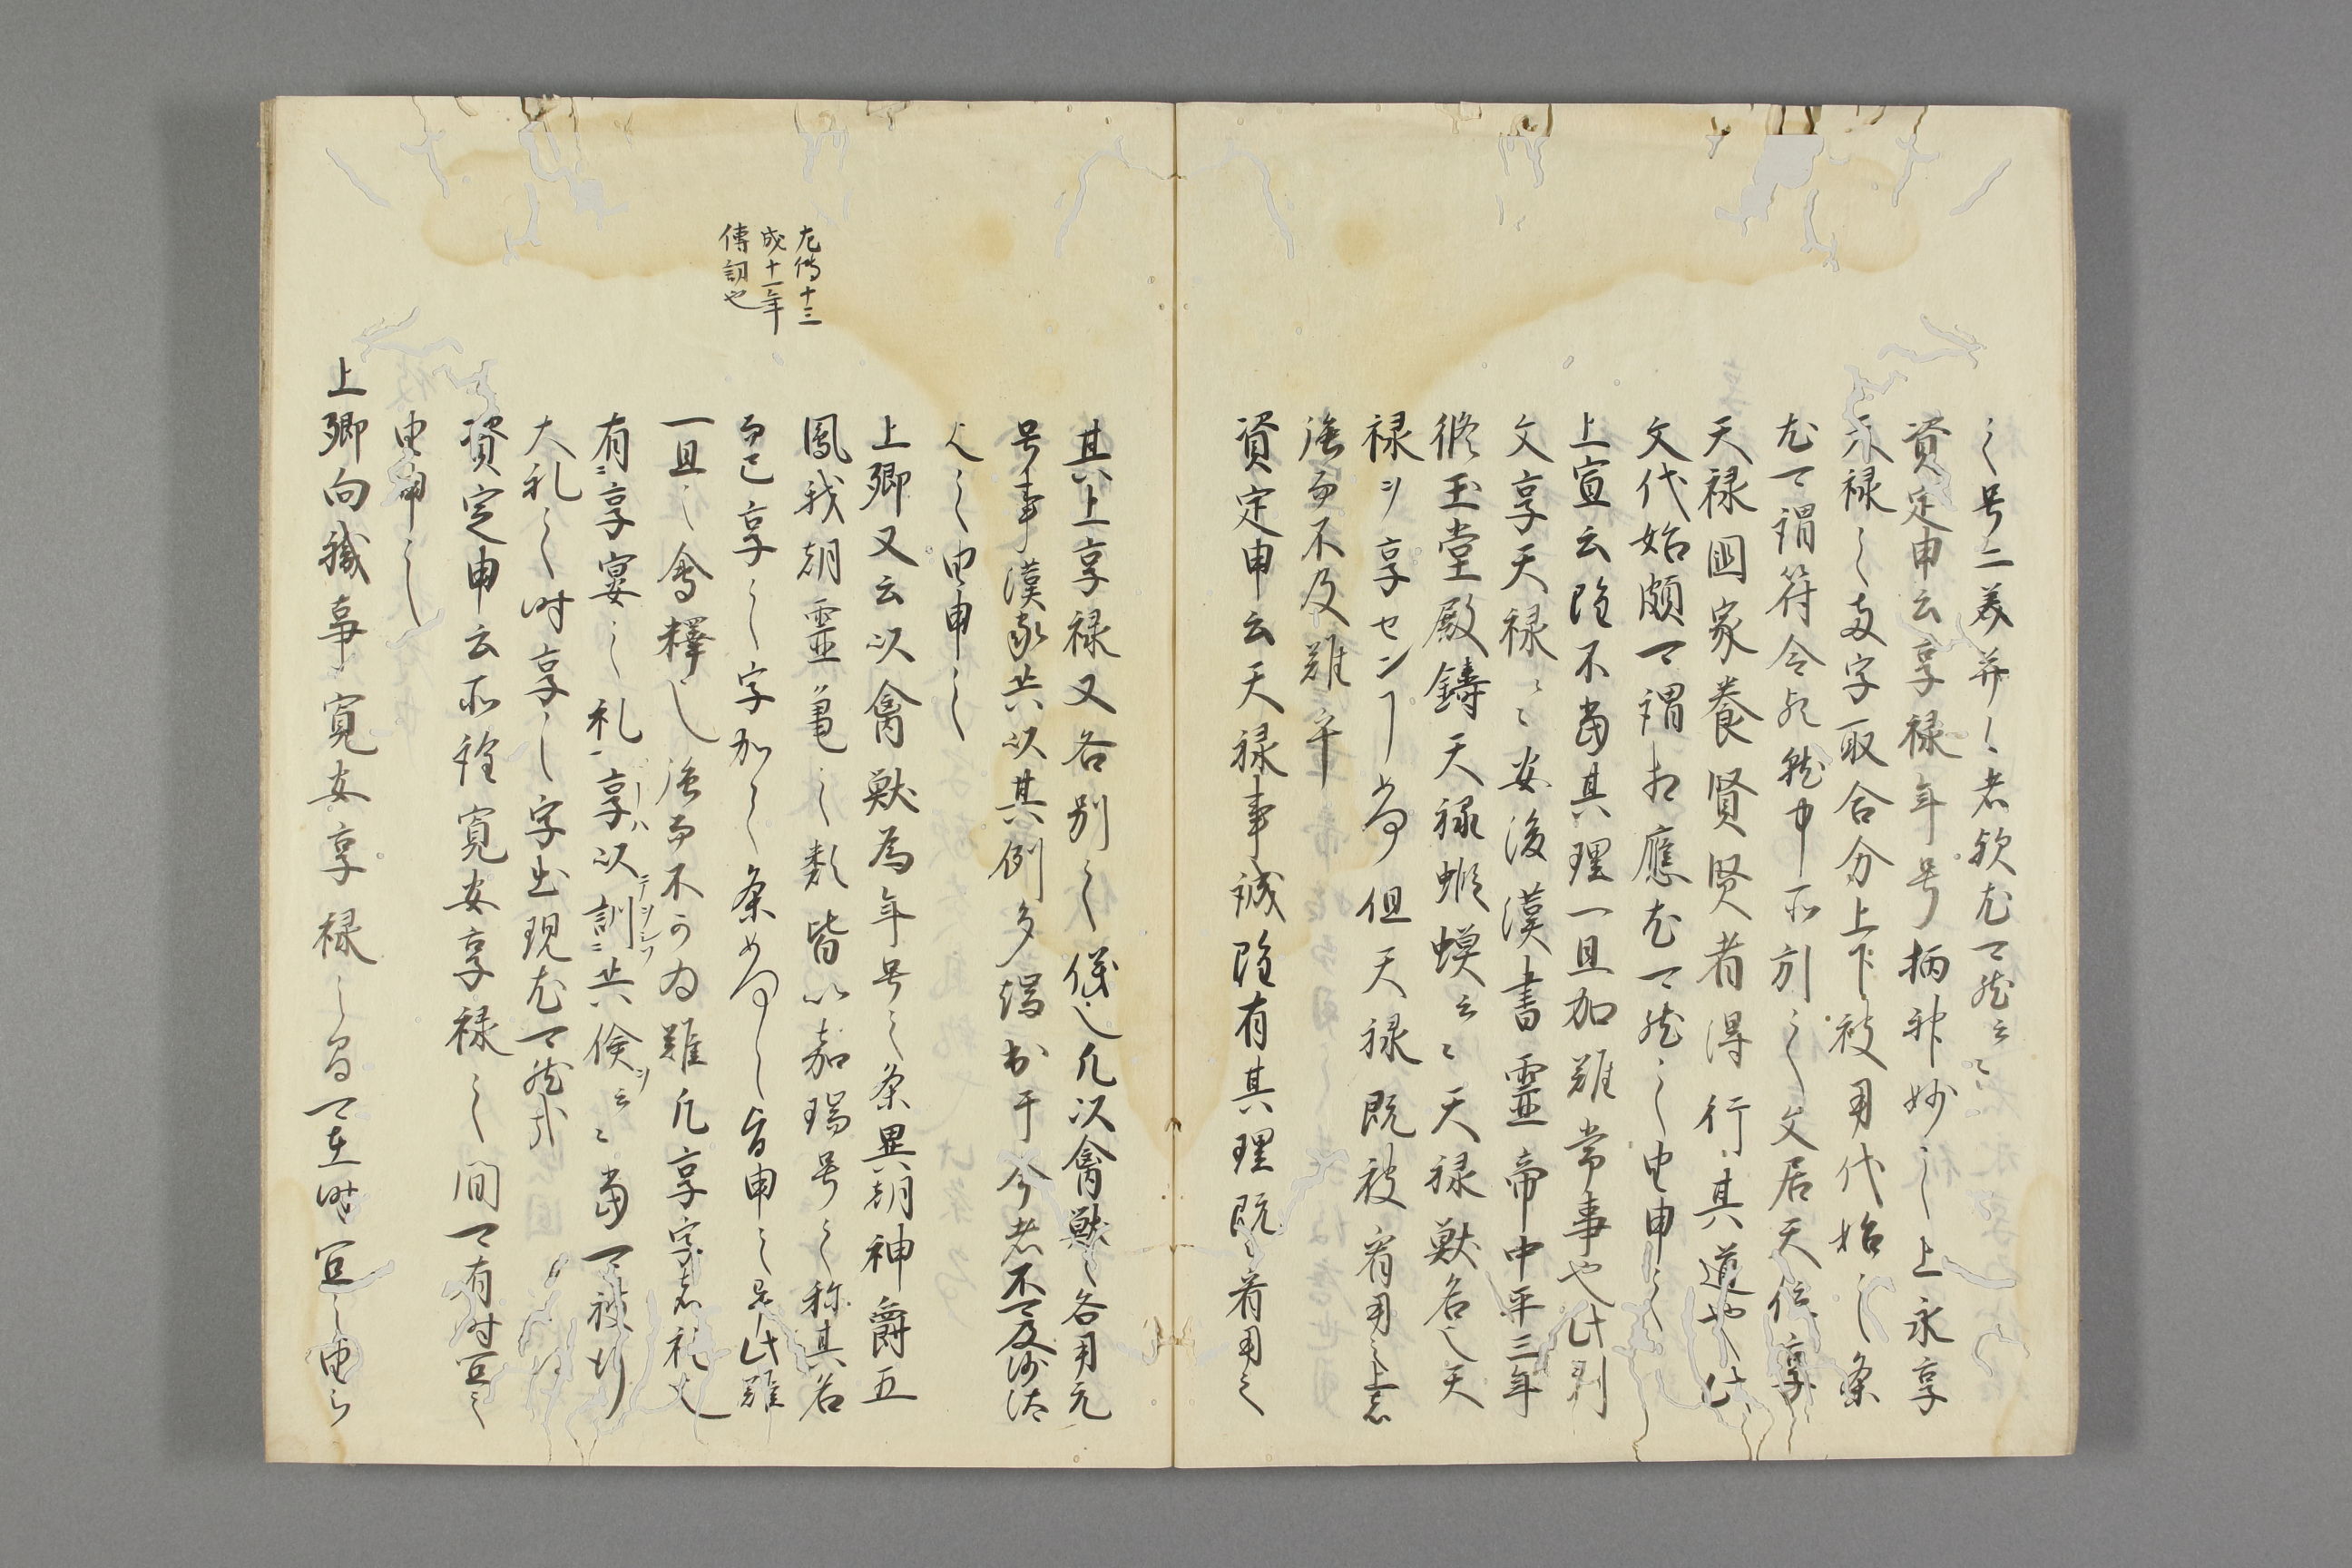 之号二美并々者歟尤可然云々
資定申云享禄年号柄神妙之上永享
永禄之両字取合分上下被用代始之条
尤可謂符合歟就中所引之文居天位享
天禄国家養賢賢者得行其道也此
文代始頗可謂相應尤可然之由申之
上宣云陰不當其理一旦加難常事也此引
文享天禄云々安後漢書霊帝中平三年
修玉堂殿鋳天禄蝦蟆云々天禄獣名也天
禄ヲ享センヿ如何但天禄既被宥用之上者
強而不及難乎
資定申云天禄事誠陰有其理既被宥用之
其上享禄又各別之儀也凡以禽獣之名用元
号事漢家共以其例多端於于今者不可及沙汰
之由申之
上卿又云以禽獣為年号之条異朝神爵五
鳳我朝霊亀之類皆以嘉瑞号之称其名
而已享之字加之条如何之旨申之是此難
一旦之會釋也強而不可為難凡享字者礼也
有享宴之礼享以訓共倹ヲ云々尚可被引
大礼之時享之字出現尤可然哉
資定申云所詮寛安享禄之間可有時宜之
由申之
上卿向職事寛安享禄之間可在時宜之由被
左傳十三
成十二年
傳詞也